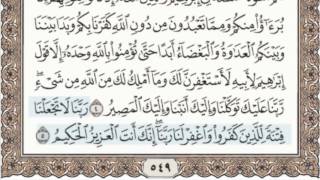 بُرَءَٰٓؤُا۟ مِنكُمْ وَمِمَّا تَعْبُدُونَ مِن دُونِ ٱللَّهِ كَفَرْنَا بِكُمْ وَبَدَا بَيْنَنَا
وَبَيْنَكُمُ ٱلْعَدَٰوَةُ وَٱلْبَغْضَآءُ أَبَدًا حَتَّىٰ تُؤْمِنُوا۟ بِٱللَّهِ وَحْدَهُۥٓ إِلَّا قَوْلَ
إِبْرَٰهِيمَ لِأَبِيهِ لَأَسْتَغْفِرَنَّ لَكَ وَمَآ أَمْلِكُ لَكَ مِنَ ٱللَّهِ مِن شَىْءٍ
رَّبَّنَا عَلَيْكَ تَوَكَّلْنَا وَإِلَيْكَ أَنَبْنَا وَإِلَيْكَ ٱلْمَصِيرُ ٤ رَبَّنَا لَا تَجْعَلْنَا
فِتْنَةً لِّلَّذِينَ كَفَرُوا۟ وَٱغْفِرْ لَنَا رَبَّنَآ إِنَّكَ أَنتَ ٱلْعَزِيزُ ٱلْحَكِيمُ ٥
٥٤٩